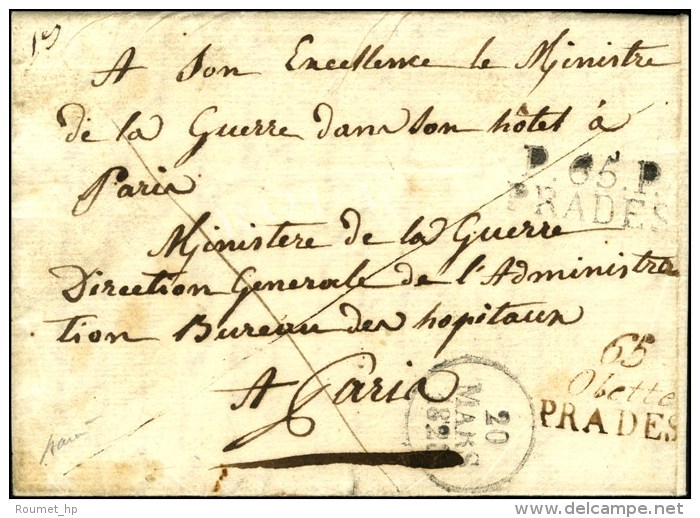 A Son Excellence le Ministre
de la Guerre dans son hôtel à
Paris
P.65.P.
PRADES
Ministere de la Guerre
Direction Generale de l'Administra
tion Bureau des hopitaux
A Paris
65
Obette
PRADES
20
MARS
182
Roumet_hp
delcampe.net